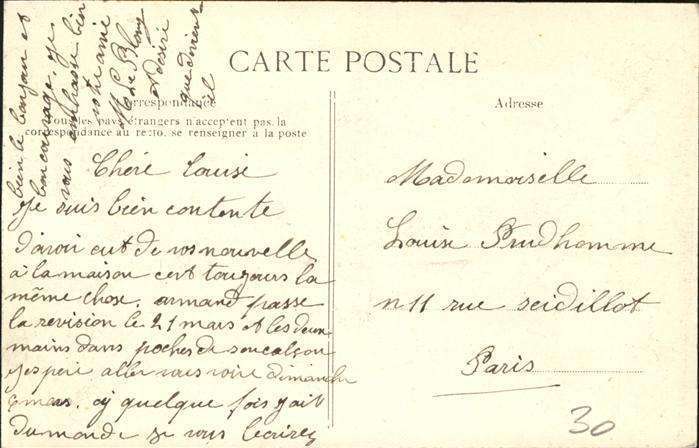 CARTE POSTALE
Correspondance
Tous les pays étrangers n'acceptent pas la
correspondance au recto, se renseigner à la poste
Adresse
Chére Louise
Je suis bien contente
d'avoir eut de vos nouvelle
à la maison cert toujours la
même chose, armand passe
la revision le 21 mars et les deux
mains dans poches de son calçon
Jesperé aller vous voire dimanche
mars. cy quelque fois y ait
du monde si vous lecirez
bien le bonjour et
bon courage, je
vous embrasse bien
votre amie
M Le Blanc
et désiré
que devient
il
Mademoiselle
Louise Prudhomme
n 11 rue seidillot
Paris
30